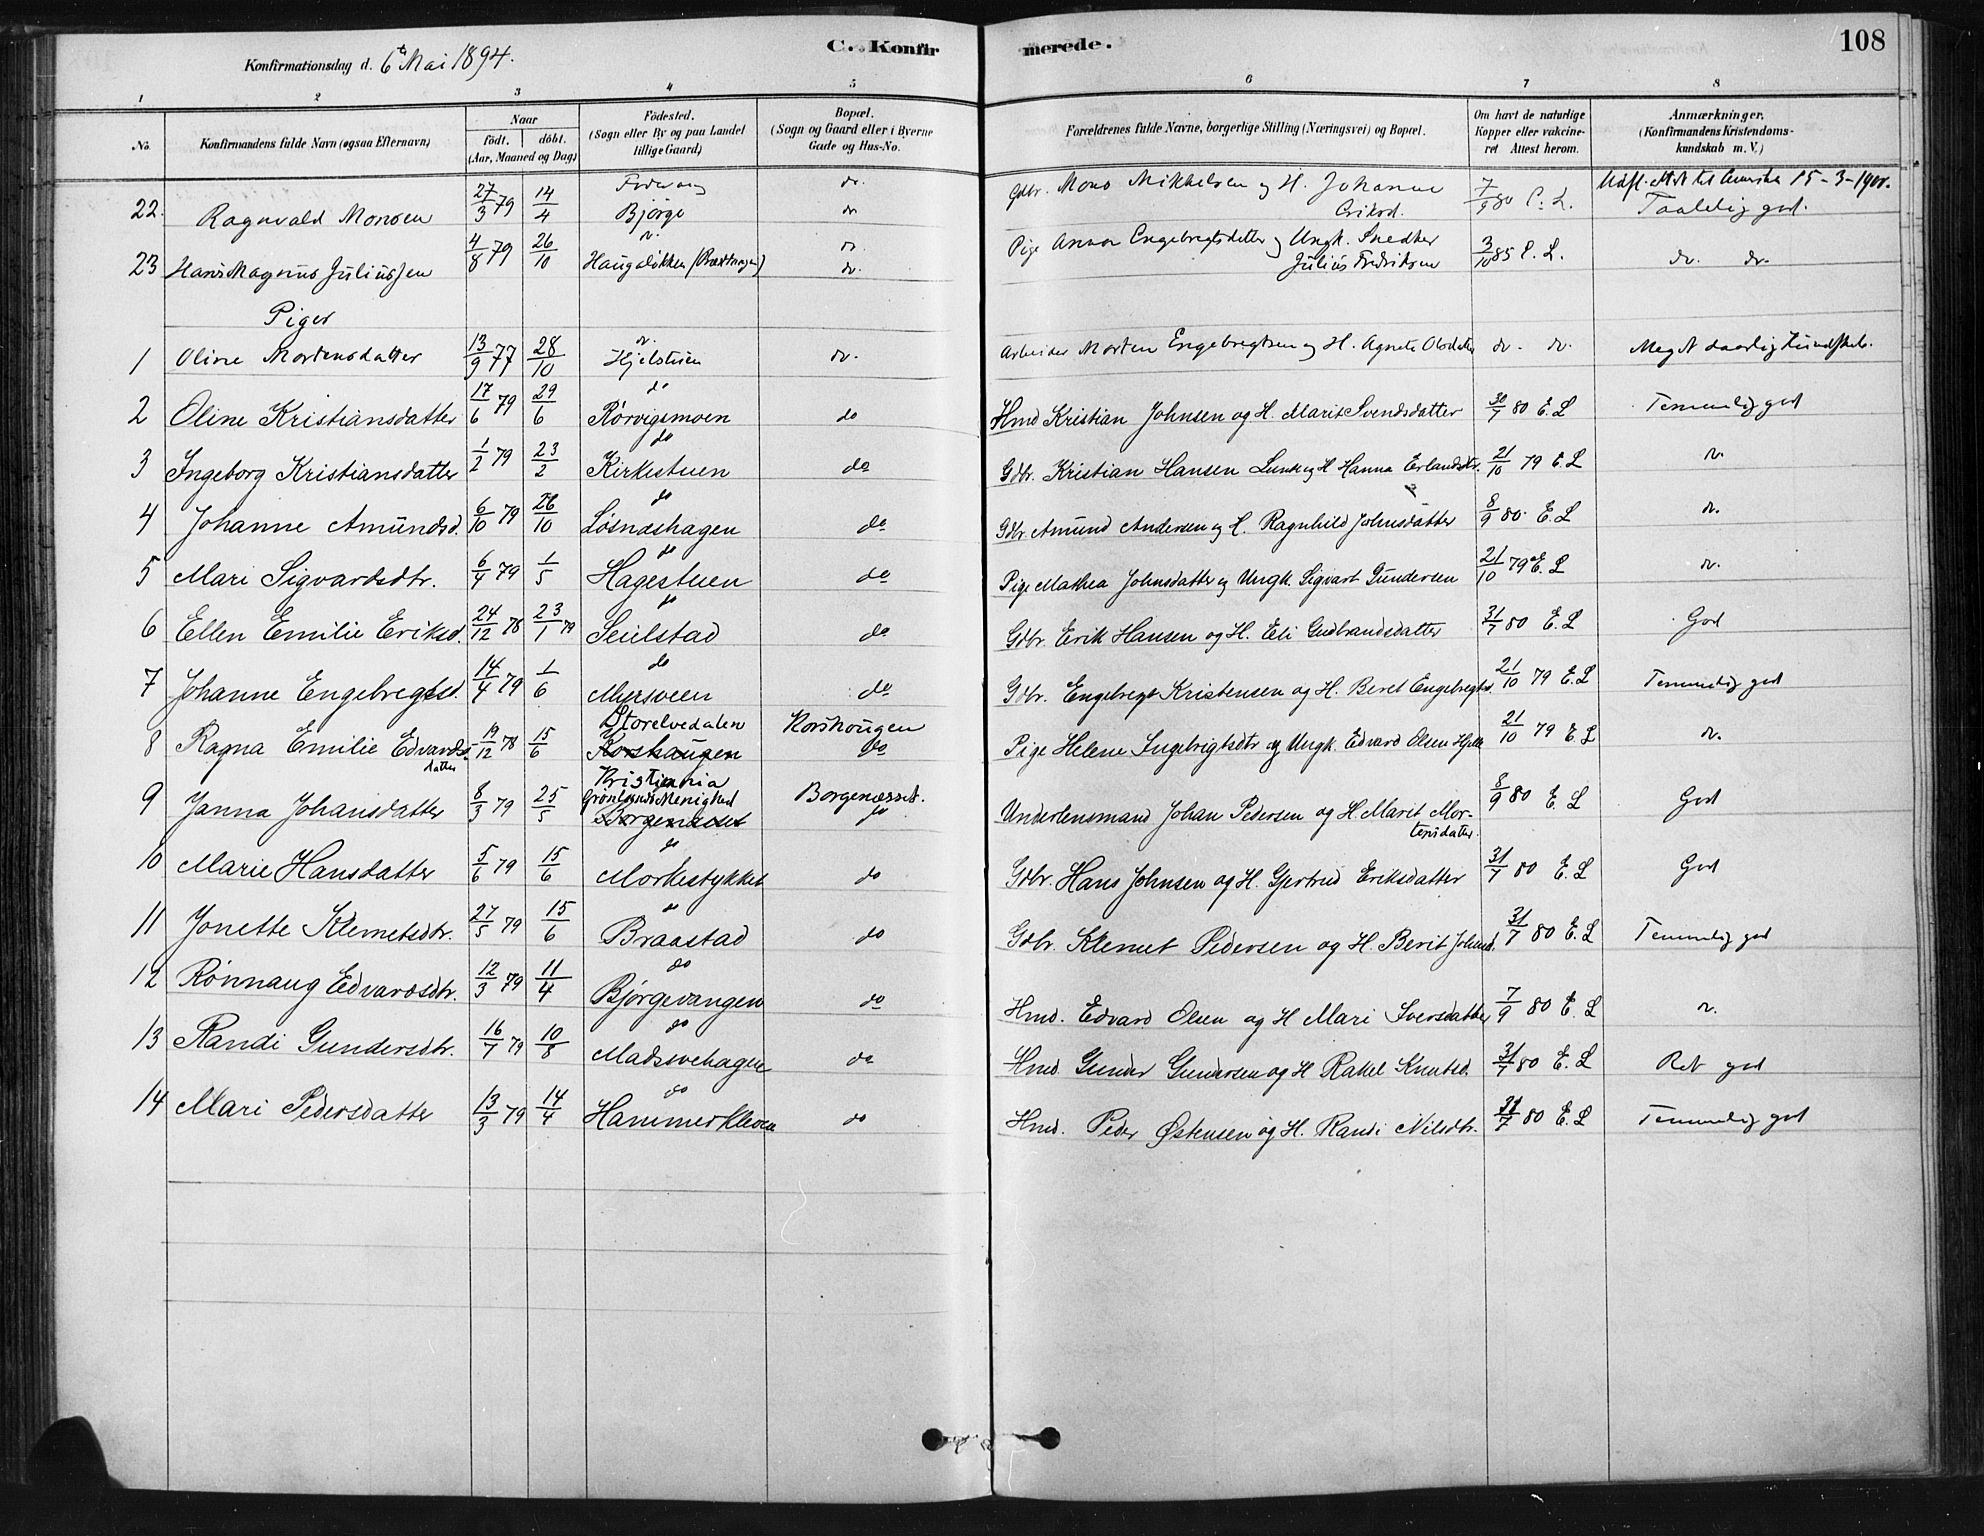 C. Konfirmerede. 108
Konfirmationsdag d. 6te Mai 1894.
1 2 3 4 5 6 7 8
No. Konfirmandens fulde Navn (ogsaa Efternavn) Naar födt. döbt. (Aar, Maaned og Dag) Födested. (Sogn eller By og paa Landet tillige Gaard) Bopæl. (Sogn og Gaard eller i Byerne Gade og Hus-No. Forældrenes fulde Navne, borgerlige Stilling (Næringsvei) og Bopæl. Om havt de naturlige Kopper eller vakcineret Attest herom. Anmærkninger. (Konfirmandens Kristendomskundskab m. V.)
22. Ragnvald Monsen 27/3 79 14/4 Bjørge do Gdbr. Mons Mikkelsen og H. Johanne Eriksd. 7/9 80 E. L. Udfl. Att til 15-3-1900. Taalelig god.
23 Hans Magnus Juliussen 4/8 79 26/10 do Haugaløkken do. Pige Anna Engebregtsdatter og Ungk. Snedker Julius Fredriksen 3/10 85 E. L. do. do.
Piger
1 Oline Mortensdatter 13/9 77 28/10 do Hjelstuen do. Arbeider Morten Engebregtsen og H. Agnete Olsdatter do. do. Meget daarlig Kundskab.
2 Oline Kristiansdatter 17/6 79 29/6 do Rörvigsmoen do Hmd Kristian Johnsen og H. Marit Svendsdatter 30/7 80 E. L Temmelig god
3 Ingeborg Kristiansdatter 1/2 79 23/2 do Kirkestuen do Gdbr. Kristian Hansen Lunke og H Hanna Erlandsdtr. 21/10 79 E. L do.
4 Johanne Amundsd. 6/10 79 26/10 do Lösnæshagen do Gdbr Amund Andersen og H. Ragnhild Johnsdatter 8/9 80 E. L do.
5 Mari Sigvardsdtr. 6/4 79 1/5 do Hagestuen do Pige Mathea Johnsdatter og Ungk. Sigvart Gundersen 21/10 79 E. L do.
6 Ellen Emilie Eriksd. 24/12 78 23/1 79 do Seielstad do Gdbr. Erik Hansen og H. Eli Gudbrandsdatter 31/7 80 E. L God
7 Johanne Engebregtsd. 14/4 79 1/6 do Myrsveen do Gdbr. Engebregt Kristensen og H. Beret Engebregtsd. 21/10 79 E. L Temmelig god
8 Ragna Emilie Edvardsdatter 19/12 78 15/6 Storelvedalen Korshaugen Korshougen do Pige Helene Ingebrigtsdtr og Ungk. Edvard Olsen Hjelle 21/10 79 E. L do.
9 Janna Johansdatter 8/3 79 25/5 Kristiania Grønlands Menighed Borgenæsset Borgenæsset. do Underlensmand Johan Pedersen og H. Marit Mortensdatter. 8/9 80 E. L God
10 Marie Hansdatter 5/6 79 15/6 do Morkestykket do Gdbr. Hans Johnsen og H. Gjertrud Eriksdatter 31/7 80 E. L God
11 Jonette Klemetsdtr. 27/5 79 15/6 do Braastad do Gdbr. Klemet Pedersen og H. Berit Johnsd. 31/7 80 E. L Temmelig god
12 Rönnaug Edvardsdtr. 12/3 79 11/4 do Bjørgevangen do Hmd. Edvard Olsen og H Mari Iversdatter 7/9 80 E. L do.
13 Randi Gundersdtr. 16/7 79 10/8 do Madsvehagen do Hmd. Gunder Gundersen og H Rakel Knutsd. 31/7 80 E. L Ret god
14 Mari Pedersdatter 13/3 79 14/4 do Hammerkleven do Hmd. Peder Østensen og H. Randi Nilsdtr. 31/7 80 E. L Temmelig god